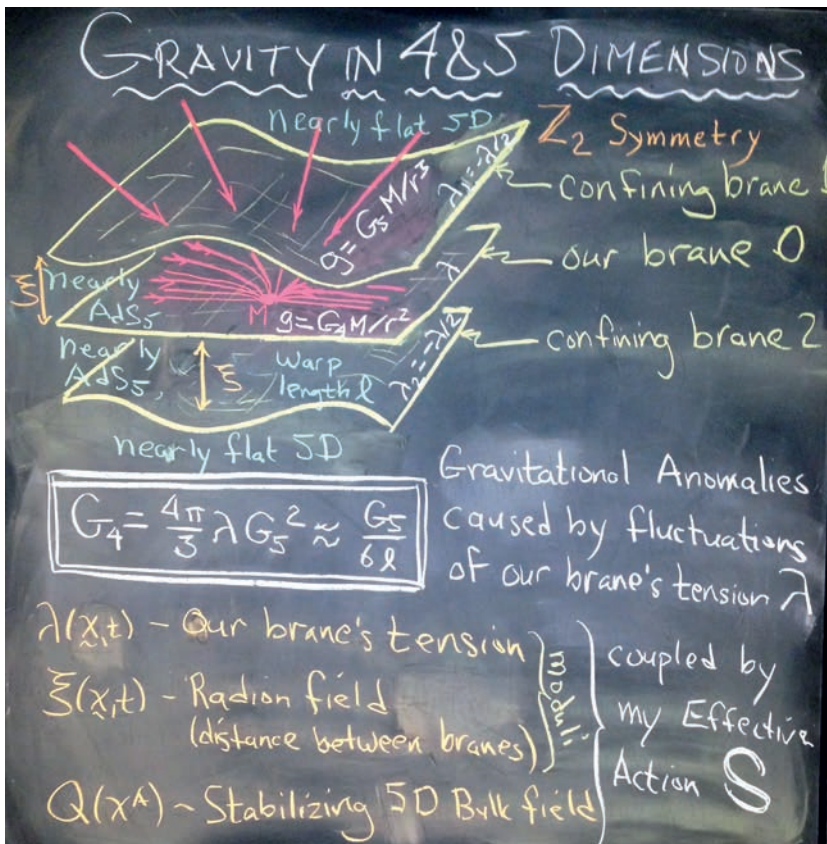 GRAVITY IN 4&5 DIMENSIONS
nearly flat 5D
Z₂ Symmetry
λ₁=-λ/2
confining brane 1
g=G₅M/r³
our brane 0
λ
ξ
nearly
AdS₅
M
g=G₄M/r²
confining brane 2
λ₂=-λ/2
nearly
AdS₅
ξ
warp
length ℓ
nearly flat 5D
G₄ = 4π/3 λG₅² ≈ G₅/6ℓ
Gravitational Anomalies
caused by fluctuations
of our brane's tension λ
λ(x,t) - Our brane's tension
ξ(x,t) - Radion field
(distance between branes)
moduli
Q(xᴬ) - Stabilizing 5D Bulk field
coupled by
my Effective
Action S